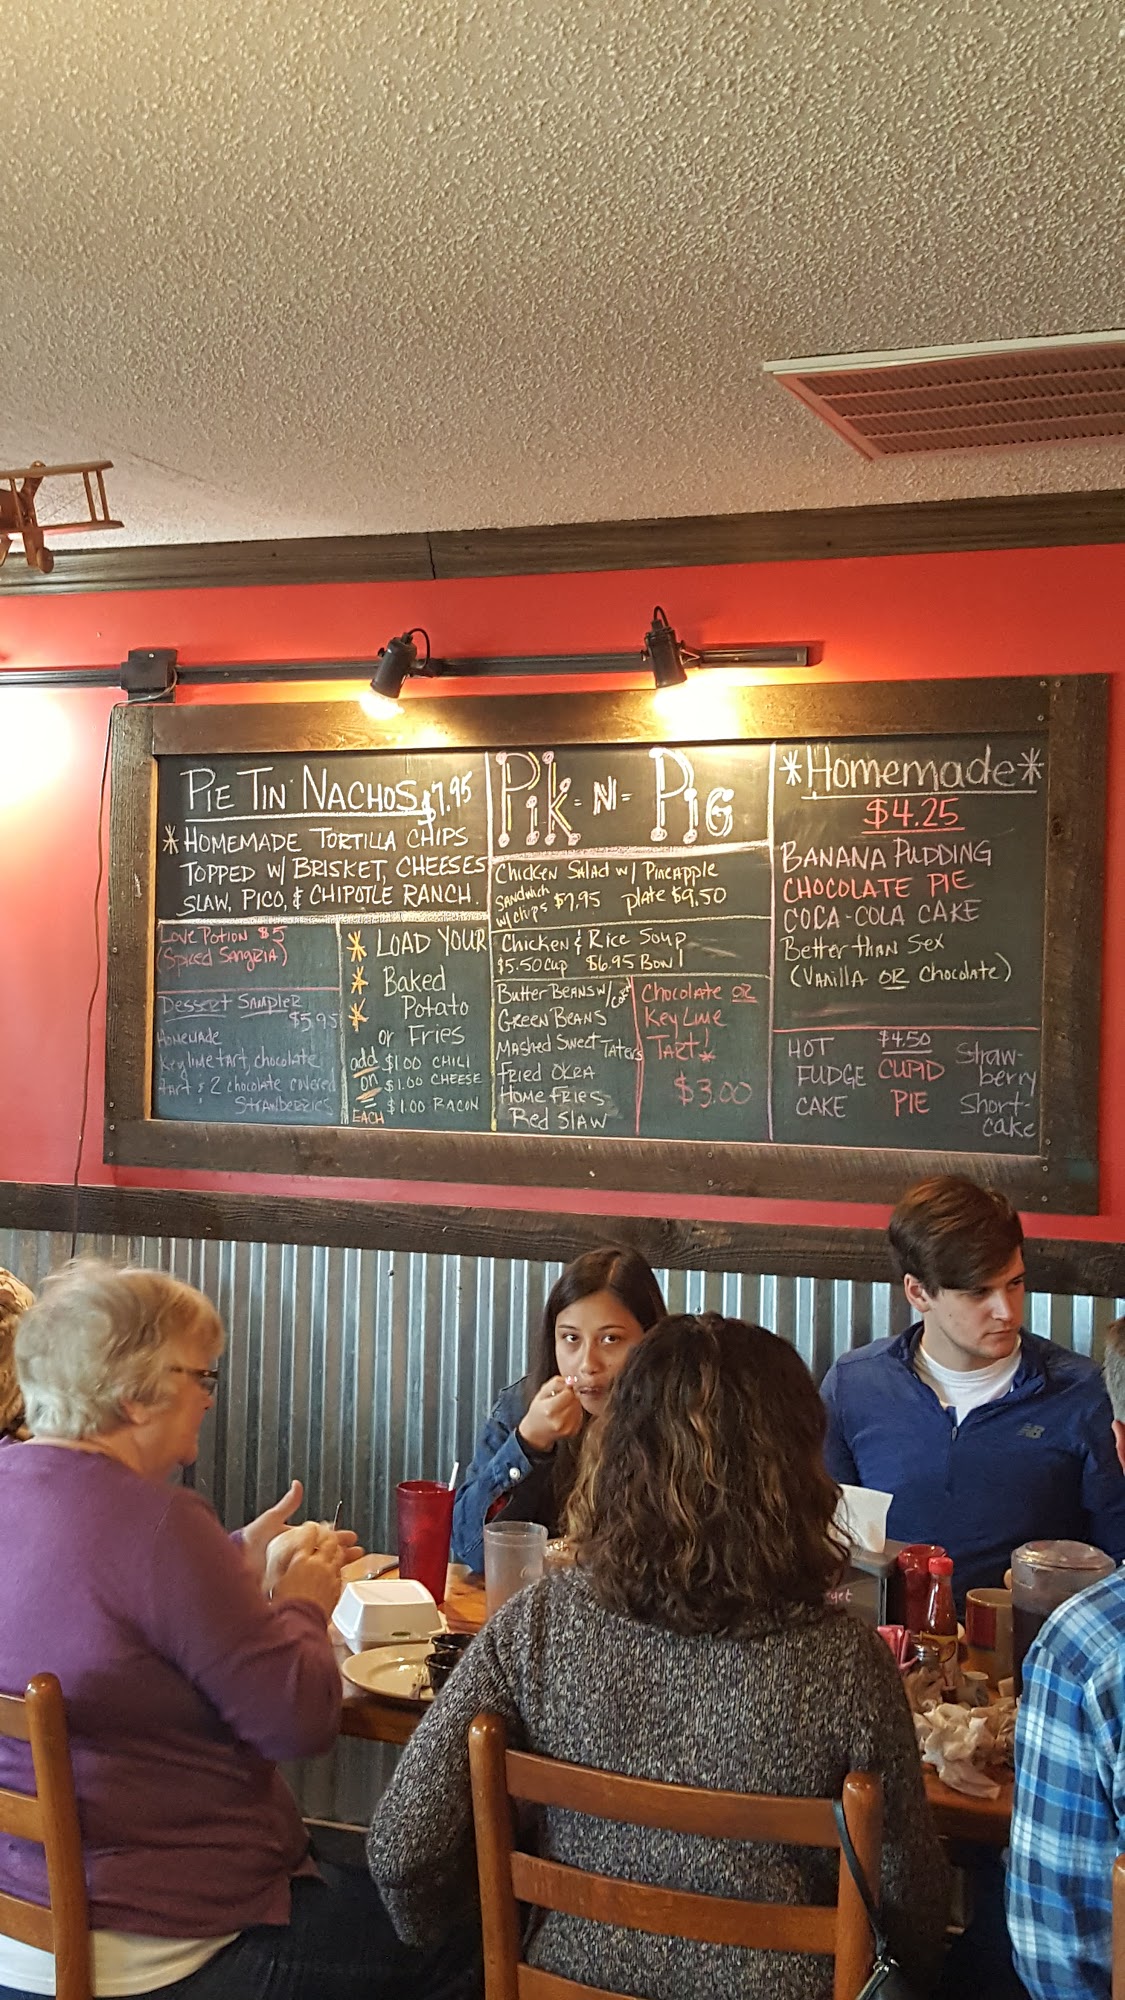 PIE TIN NACHOS $7.95
* HOMEMADE TORTILLA CHIPS
TOPPED W/ BRISKET, CHEESES
SLAW, PICO, & CHIPOTLE RANCH.
LOVE POTION $5
(SPICED SANGRIA)
DESSERT SAMPLER
$5.95
HOMEMADE
Key lime tart, chocolate
tart & 2 chocolate covered
STRAWBERRIES
* LOAD YOUR
* Baked
* Potato
or Fries
add $1.00 CHILI
on $1.00 CHEESE
EACH $1.00 BACON
Pik-N-Pig
CHICKEN SALAD W/ PINEAPPLE
SANDWICH
w/chips $7.95 plate $9.50
Chicken & Rice Soup
$5.50 cup $6.95 Bowl
Butter BEANS W/
GREEN BEANS
MASHED SWEET TATERS
FRIED OKRA
HOME FRIES
Red SLAW
Chocolate OR
Key Lime
TART! *
$3.00
*Homemade*
$4.25
BANANA PUDDING
CHOCOLATE PIE
COCA-COLA CAKE
Better than Sex
(Vanilla OR Chocolate)
HOT
FUDGE
CAKE
$4.50
CUPID
PIE
Straw-
berry
Short-
cake
NB